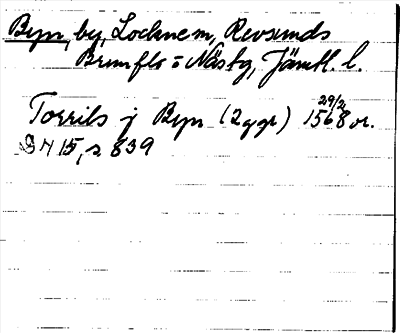 Byn, by, Lockne sn, Revsunds
Brunflo o Näs tg, Jämtl. l.
Torrils j Byn (2 ggr) 29/2 1568 or.
DN 15, s 839